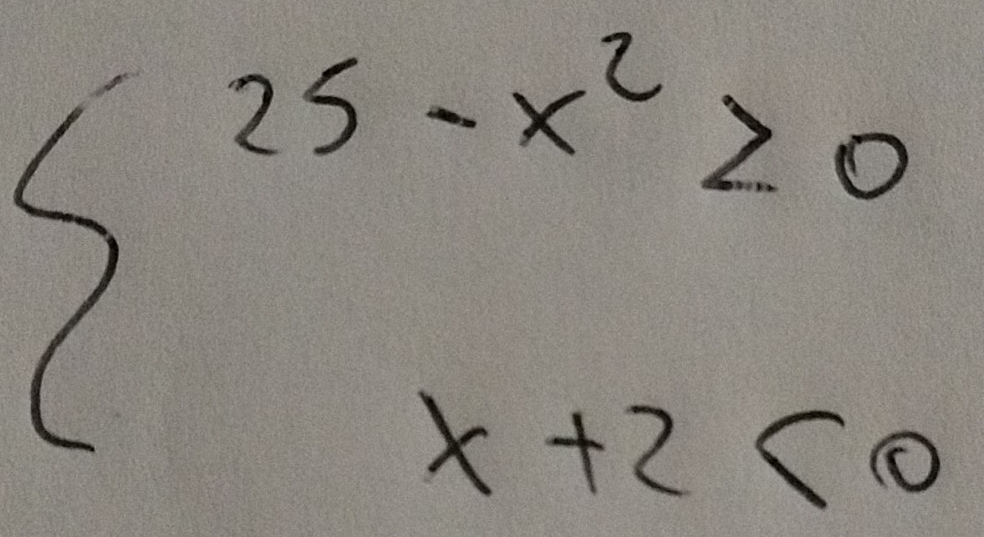 25 - x² ≥ 0
x + 2 < 0